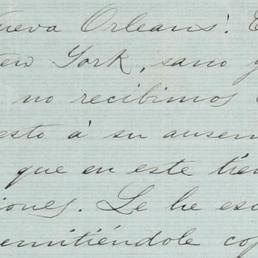 ueva Orleans! E
ew York, sano y
no recibimos
esto á su ausen
que en este tien
iones. Le he esc
emitiéndole cop